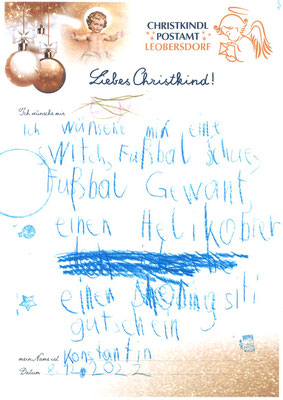 CHRISTKINDL
POSTAMT
LEOBERSDORF
Liebes Christkind!
Ich wünsche mir
Ich wünsche mir eine
switch, Fußbal schue,
Fußbal Gewant,
einen Helikobter
einen shoping siti
gutschein
mein Name ist Konstantin
Datum 8.12.2022